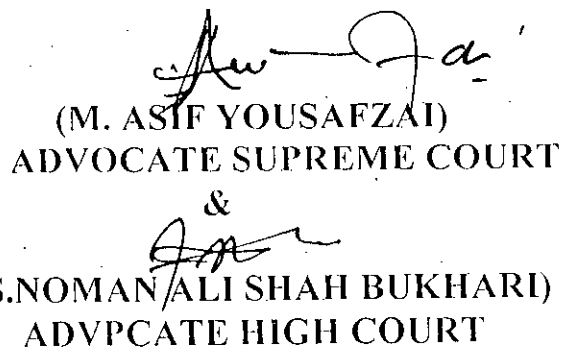 (M. ASIF YOUSAFZAI)
ADVOCATE SUPREME COURT
&
S.NOMAN ALI SHAH BUKHARI)
ADVPCATE HIGH COURT